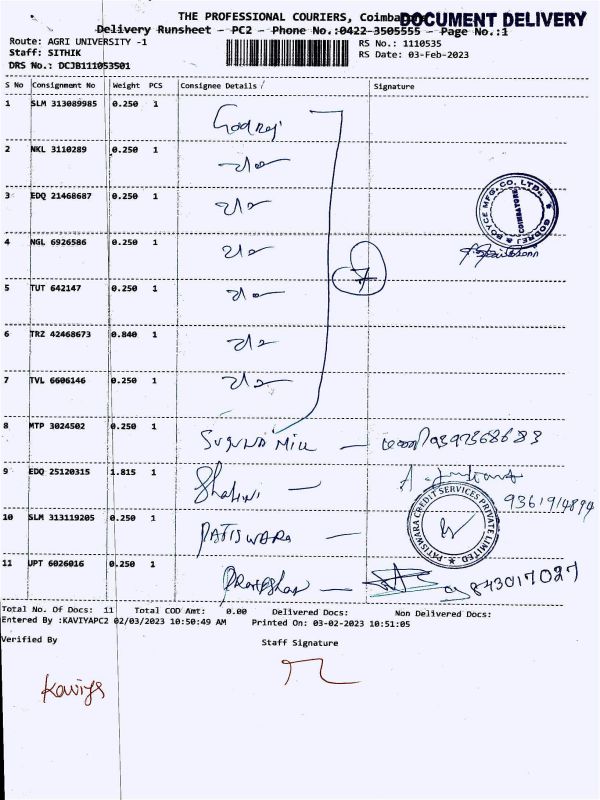 THE PROFESSIONAL COURIERS, Coimba DOCUMENT DELIVERY
Delivery Runsheet - PC2 - Phone No.:0422-3505555 - Page No.:1
Route: AGRI UNIVERSITY -1 RS No.: 1110535
Staff: SITHIK RS Date: 03-Feb-2023
DRS No.: DCJB111053501
S No Consignment No Weight PCS Consignee Details Signature
1 SLM 313089985 0.250 1 Godrej
2 NKL 3110289 0.250 1
3 EDQ 21468687 0.250 1
GODREJ & BOYCE MFG. CO. LTD. COIMBATORE
4 NGL 6926586 0.250 1
5 TUT 642147 0.250 1
7
6 TRZ 42468673 0.840 1
7 TVL 6606146 0.250 1
8 MTP 3024502 0.250 1 SUGUNA Mill
9 EDQ 25120315 1.815 1 Shalini
PATISWARA CREDIT SERVICES PRIVATE LIMITED
10 SLM 313119205 0.250 1 PATISWARA
11 UPT 6026016 0.250 1
Total No. Of Docs: 11 Total COD Amt: 0.00 Delivered Docs: Non Delivered Docs:
Entered By :KAVIYAPC2 02/03/2023 10:50:49 AM Printed On: 03-02-2023 10:51:05
Verified By Staff Signature
Kaviya